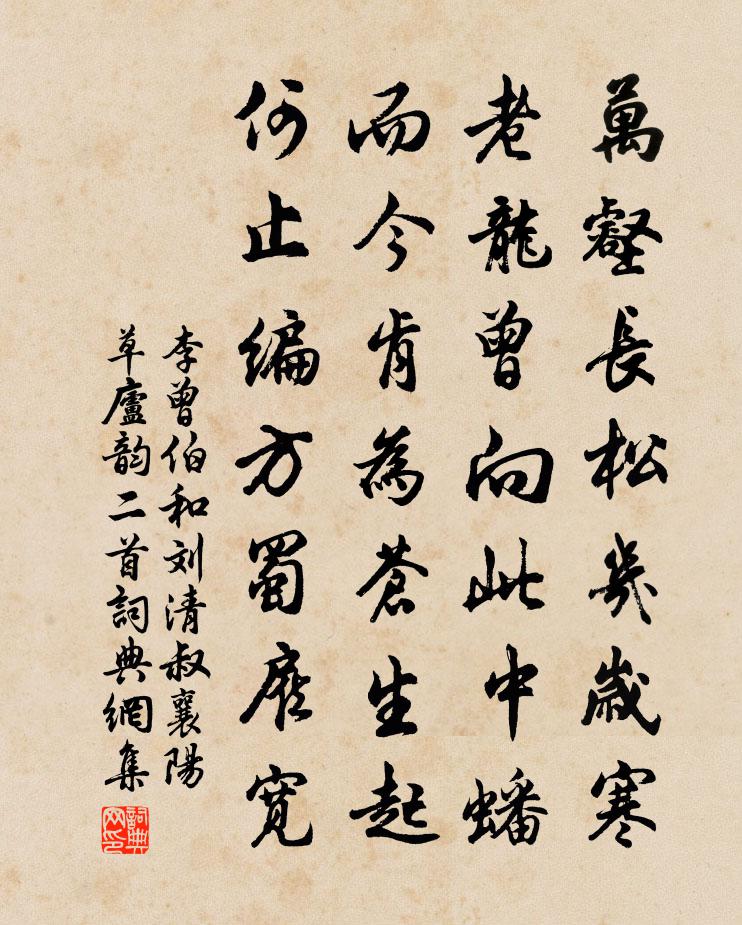 萬壑長松幾歲寒
老龍曾向此中蟠
而今肯為蒼生起
何止編方蜀寬
李曾伯和刘清叔襄陽
草廬韵二首詞典網集
詞典
网印